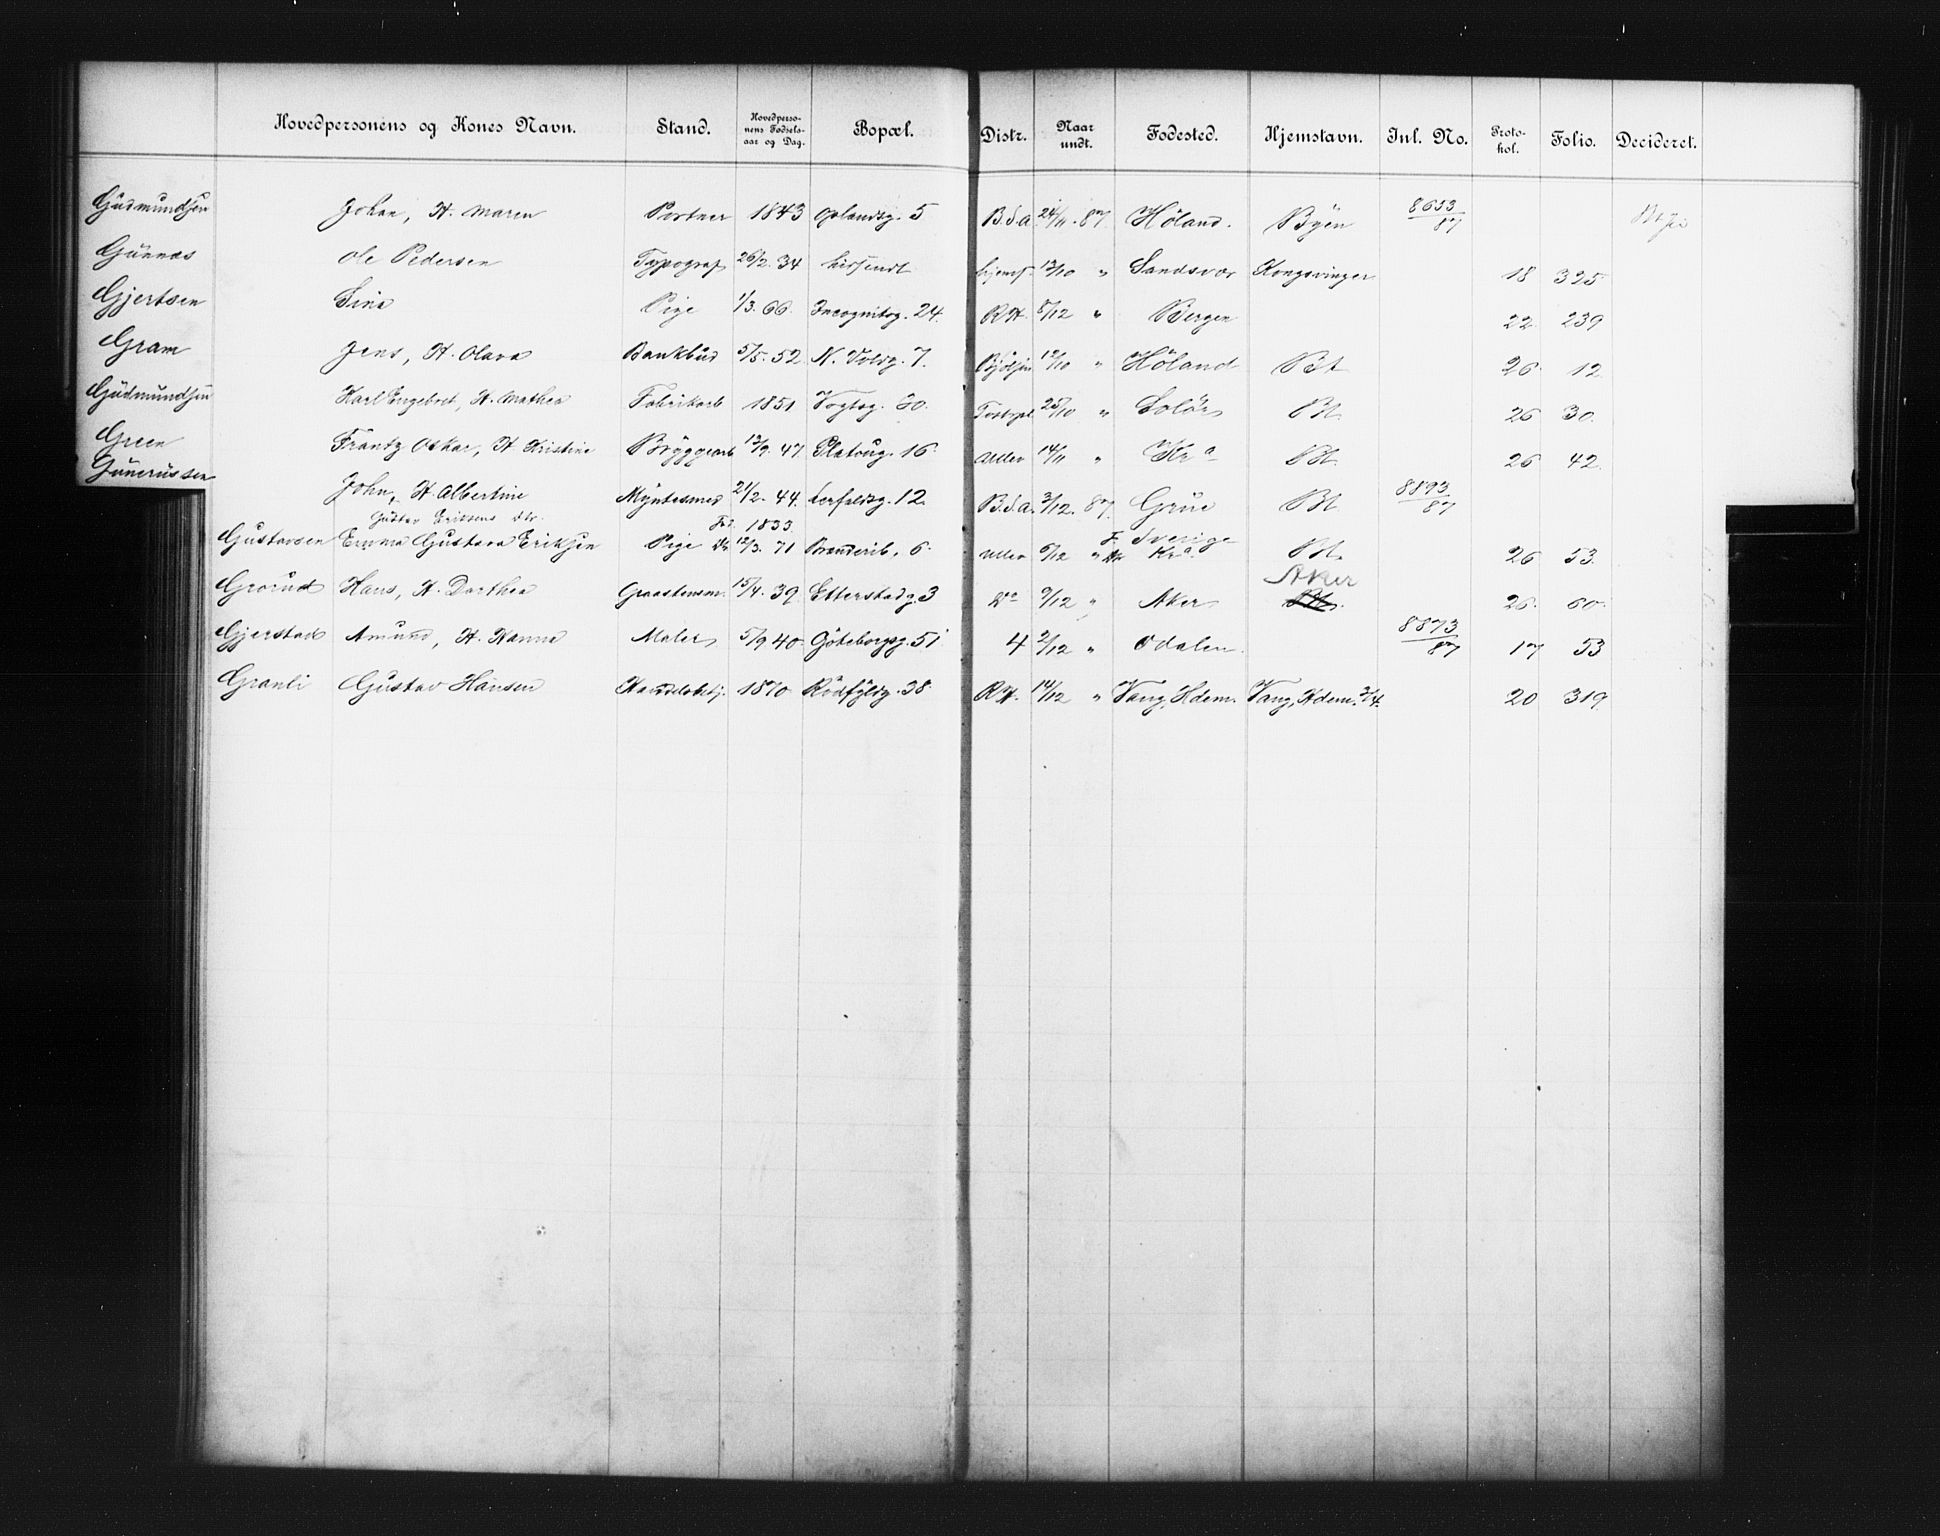 Hovedpersonens og Kones Navn. Stand. Hovedperso-nens Fødsels-aar og Dag. Bopæl. Distr. Naar undt. Fødested. Hjemstavn. Jnl. No. Proto-kol. Folio. Decideret.
Gudmundsen Johan, H. Maren Portner 1843 Oplandsg. 5 B.d.a. 24/11 87 Höland. Byen 8653/87
Gunnas Ole Pedersen Typograf 26/2. 34 hidsendt hjemf. 13/10 " Sandsvær Kongsvinger 18 325
Gjertsen Sina Pige 1/3. 66. Incognitog. 24. RH. 5/12 " Bergen 22. 239
Gram Jens, H. Olava Bankbud 5/5. 52 N. Voldg. 7. 12/10 " Höland Bt 26. 12
Gudmundsen Karl Engebret, H. Mathea Fabrikarb 1851 Vogtsg. 30. 25/10 " Solör Bt. 26 30.
Green Frantz Oskar, H. Kristine Bryggearb 13/9. 47 Platoug. 16. Ullev 14/11 " Kr a Bt. 26 42.
Gunerussen John, H. Albertine Myntesmed 21/2. 44. Lerfaldsg. 12. B.d.a. 3/12. 87. Grue Bt 8893/87
Gustav Eriksens Dtr. Far. 1833. F. Sverige
Gustavsen Emma Gustava Eriksen Pige Dr 12/3. 71 Brennerib. 6. Ullev 6/12 " Dr Kr a. Bt. 26 53.
Aker
Grorud Hans, H. Dorthea Graastensm. 15/4. 39. Etterstadg. 3 Do 9/12 " Aker Bt. 26. 60.
Gjerstad Amund, H. Hanna Maler 5/9 40. Göteborgsg. 51 4 2/12 " Odalen. 8873/87 17 53
Granli Gustav Hansen Handelsbetj. 1870 Rödfyldg. 38. RH. 14/12 " Vang, Hdem. Vang, Hdem. 3/4. 20 319.